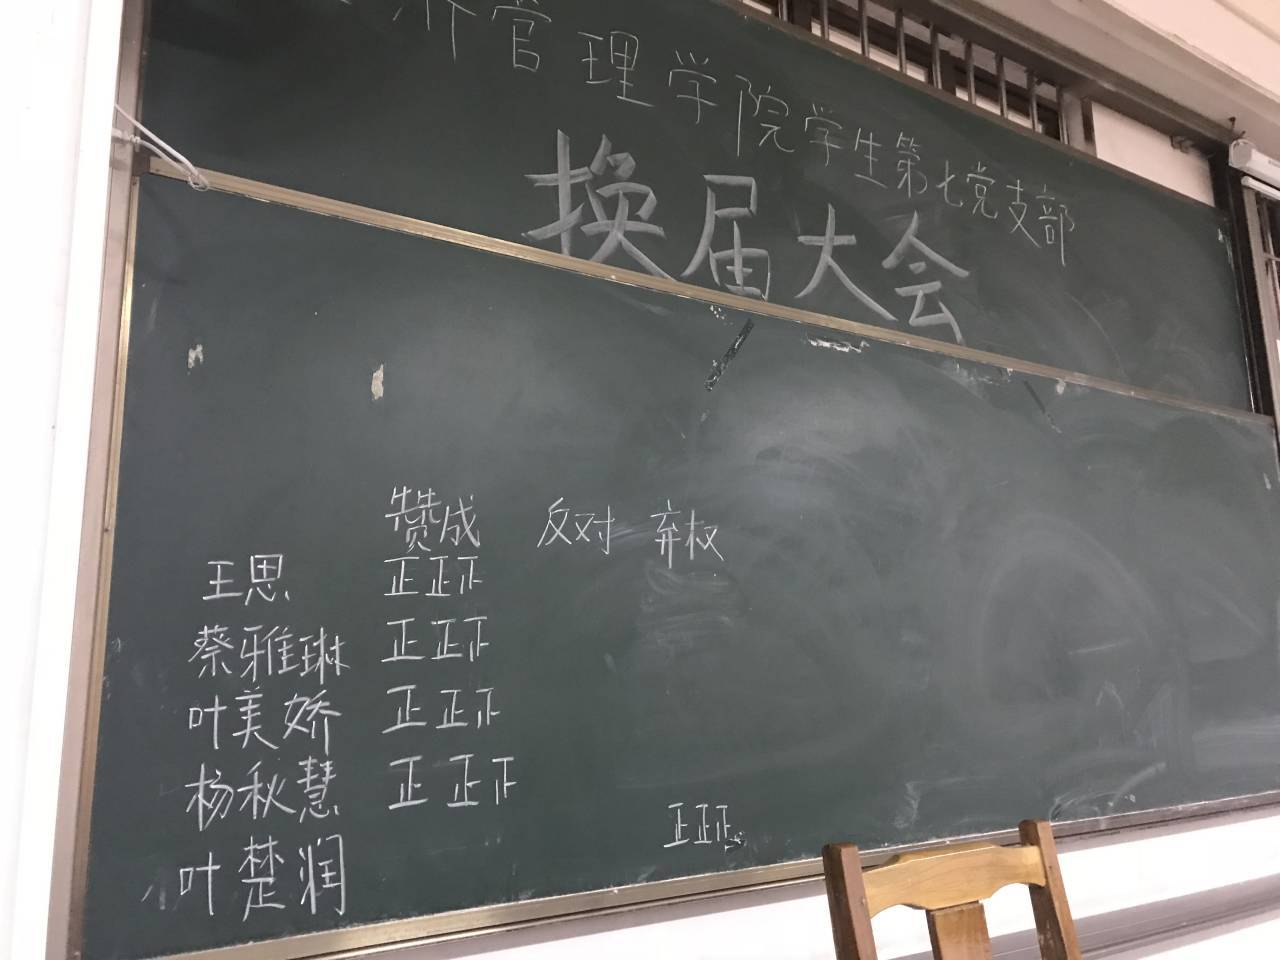 济管理学院学生第七党支部
换届大会
赞成 反对 弃权
王思 正正正
蔡雅琳 正正正
叶美娇 正正正
杨秋慧 正正正
叶楚润 正正正